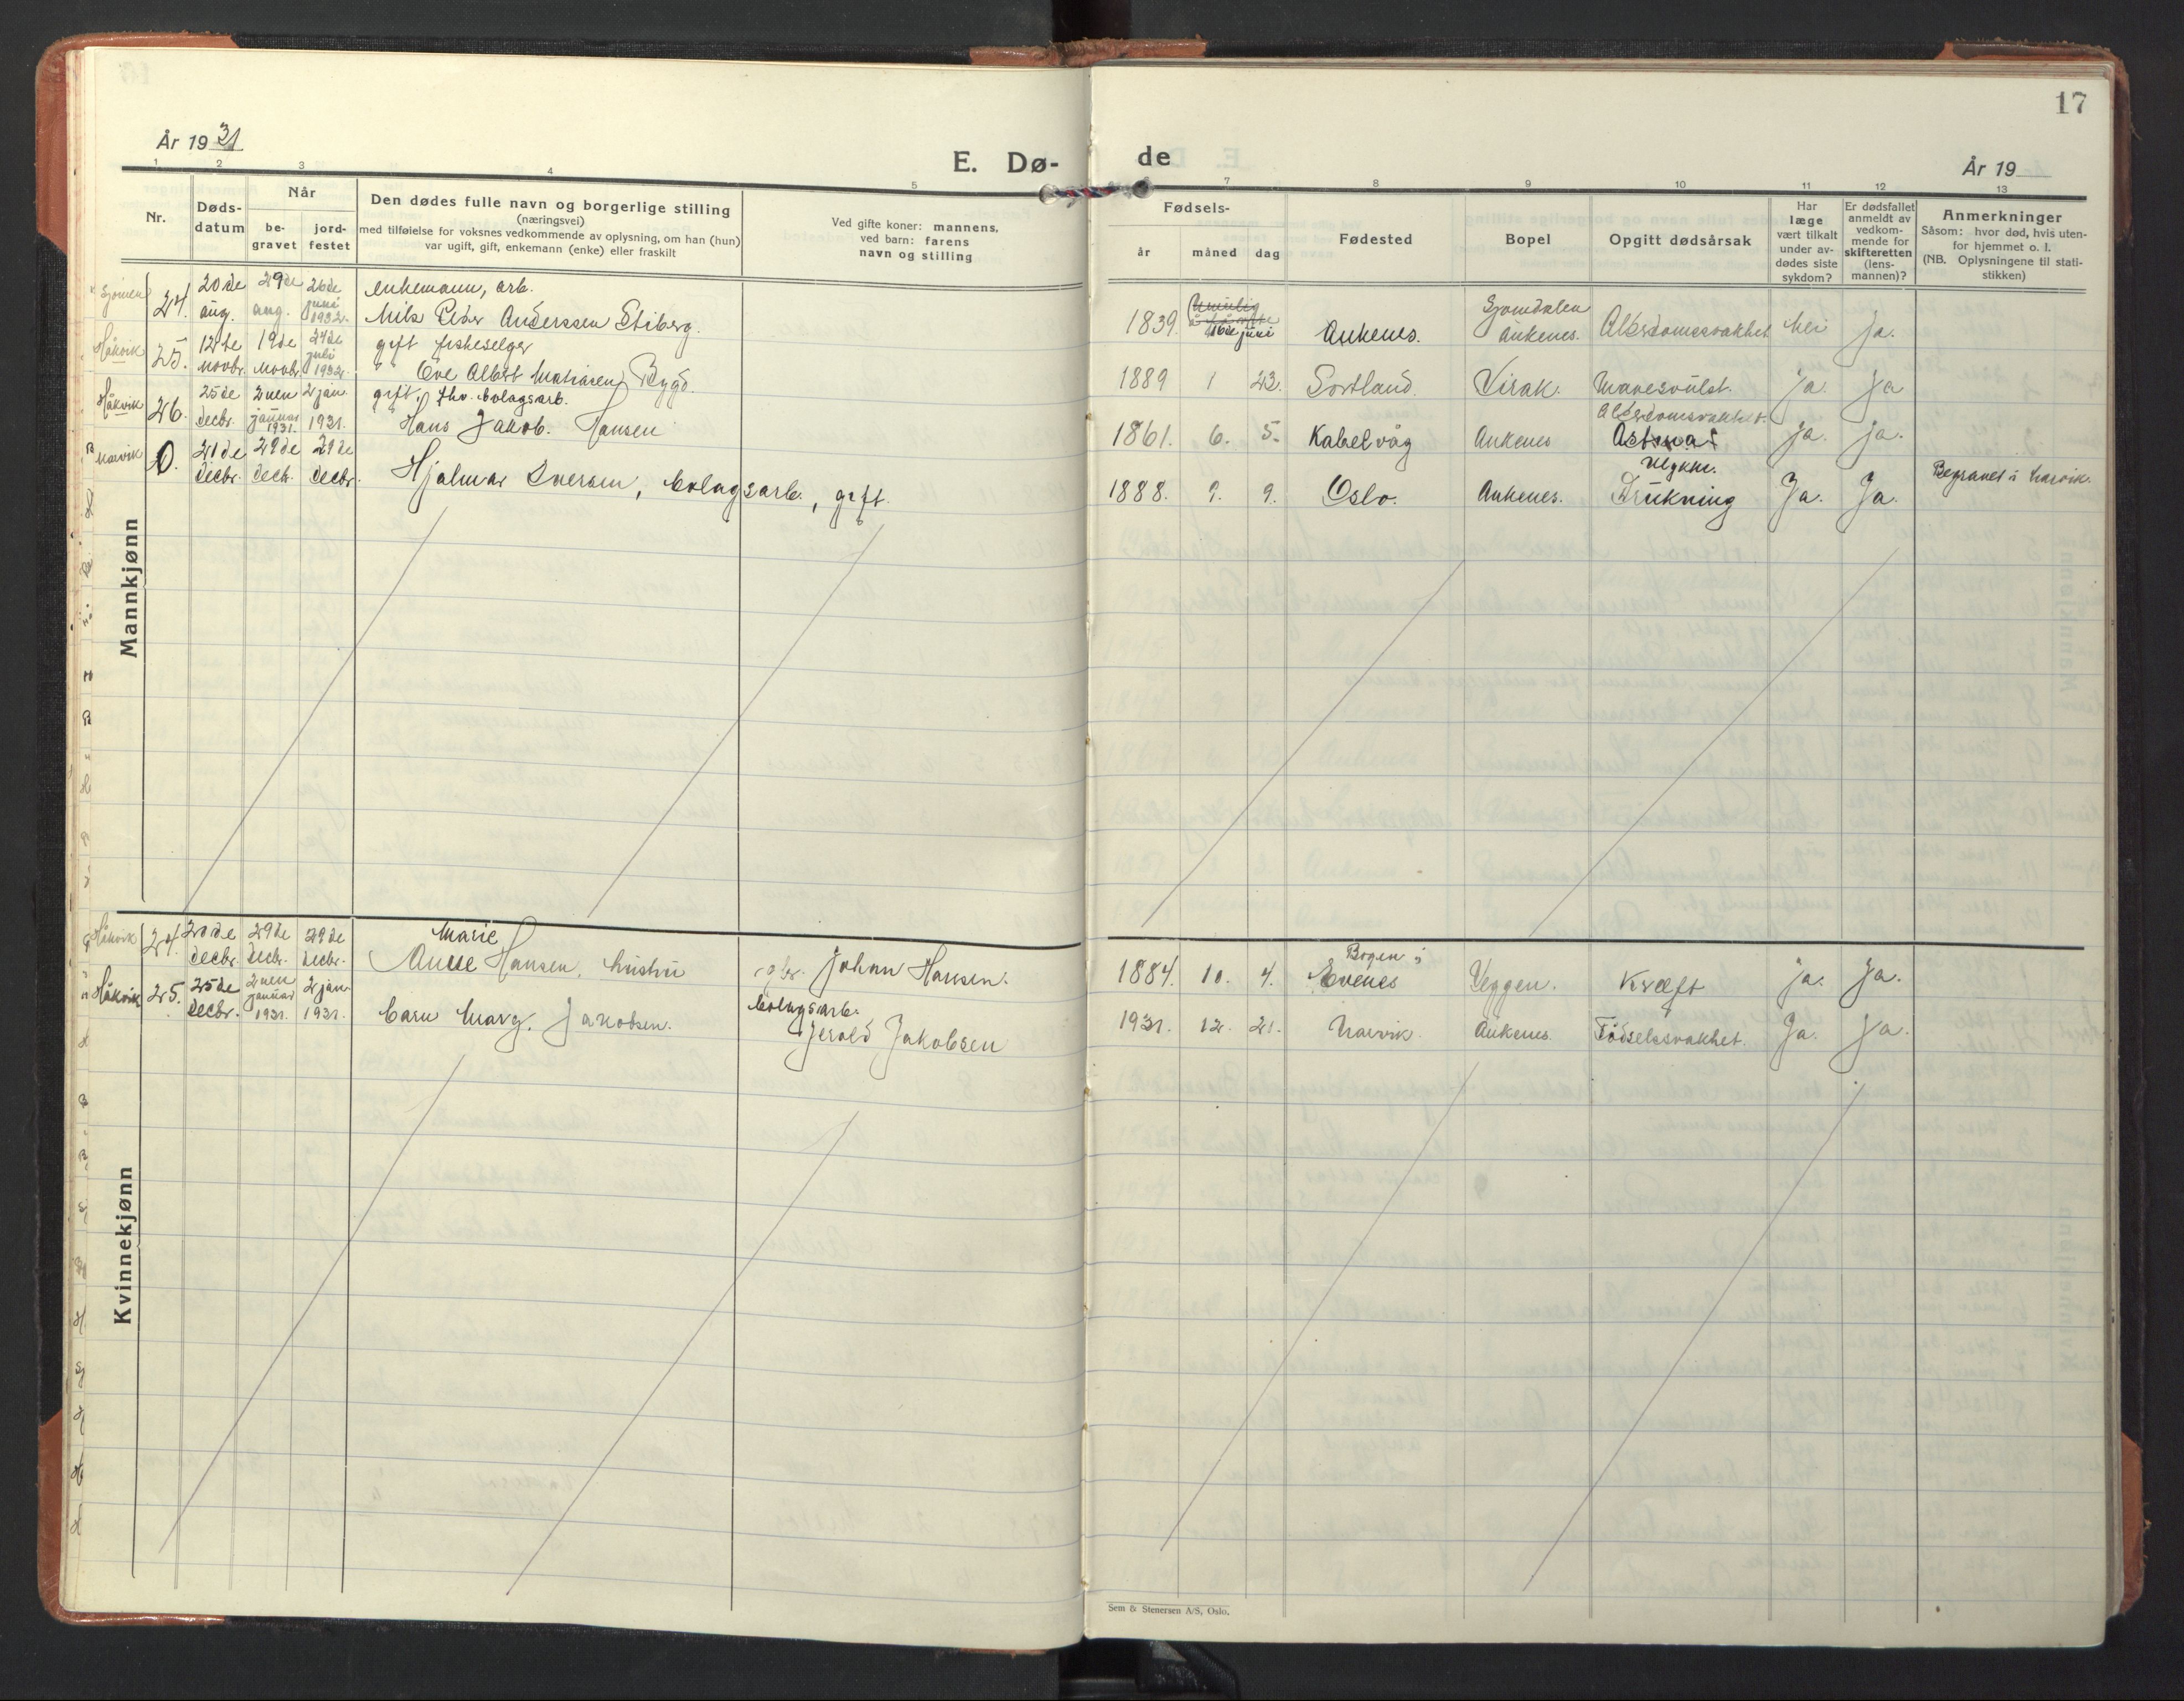 17
År 19 31
E. Dø-
de
År 19
1 2 3 4 5 6 7 8 9 10 11 12 13
Nr.
Døds-
datum
Når
be-
gravet
jord-
festet
Den dødes fulle navn og borgerlige stilling
(næringsvei)
med tilføielse for voksnes vedkommende av oplysning, om han (hun)
var ugift, gift, enkemann (enke) eller fraskilt
Ved gifte koner: mannens,
ved barn: farens
navn og stilling
Fødsels-
år måned dag
Fødested
Bopel
Opgitt dødsårsak
Har
læge
vært tilkalt
under av-
dødes siste
sykdom?
Er dødsfallet
anmeldt av
vedkom-
mende for
skifteretten
(lens-
mannen)?
Anmerkninger
Såsom: hvor død, hvis uten-
for hjemmet o. l.
(NB. Oplysningene til stati-
stikken)
Mannkjønn
Sjomen 24. 20de aug. 29de aug. 26de juni 1932.
enkemann, arb.
Nils Peder Anderssen Stiberg.
1839. 16de juni Ankenes. Sjomdalen Ankenes. Alderdomssvakhet Nei Ja.
Håkvik 25. 12te novbr. 19de novbr. 24de juli 1932.
gift fiskeselger
Ove Albert Mathisen Bygd.
1889 1 23. Sortland. Virak. Mavesvulst. ja. ja
Håkvik 26. 25de decbr. 2nen januar 1931. 2 jan. 1931.
gift, fhv. bolagsarb.
Hans Jakob. Hansen
1861. 6. 5. Kabelvåg Ankenes Alderdomssvakhet. Astma ja. ja.
Narvik 0. 21de decbr. 29de decb. 29de decbr.
Hjalmar Iversen, bolagsarb., gift.
1888. 9. 9. Oslo. Ankenes. Ulykke. Drukning Ja. Ja. Begravet i Narvik.
Kvinnekjønn
Håkvik 24. 20de decbr. 29de decbr. 29de decbr.
Marie
Anne Hansen, hustru
gbr. Johan Hansen.
1884. 10. 4. Bogen i Evenes Veggen. Kræft ja. Ja.
Håkvik 25. 25de decbr. 2nen januar 1931. 2 jan 1931.
barn Marg. Jakobsen.
bolagsarb.
Jerold Jakobsen
1931. 12. 21. Narvik. Ankenes. Fødselssvakhet. Ja. Ja.
Sem & Stenersen A/S, Oslo.